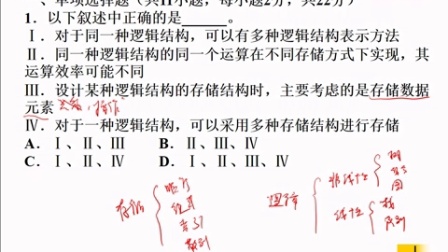 、单项选择题（共11小题，每小题2分，共22分）
1．以下叙述中正确的是______。
Ⅰ．对于同一种逻辑结构，可以有多种逻辑结构表示方法
Ⅱ．同一种逻辑结构的同一个运算在不同存储方式下实现，其
运算效率可能不同
Ⅲ．设计某种逻辑结构的存储结构时，主要考虑的是存储数据
元素
Ⅳ．对于一种逻辑结构，可以采用多种存储结构进行存储
A．Ⅰ、Ⅱ、Ⅲ B．Ⅱ、Ⅲ、Ⅳ
C．Ⅰ、Ⅱ、Ⅳ D．Ⅰ、Ⅱ、Ⅲ、Ⅳ
存储
顺序
链式
索引
散列
逻辑
非线性
树
图
线性